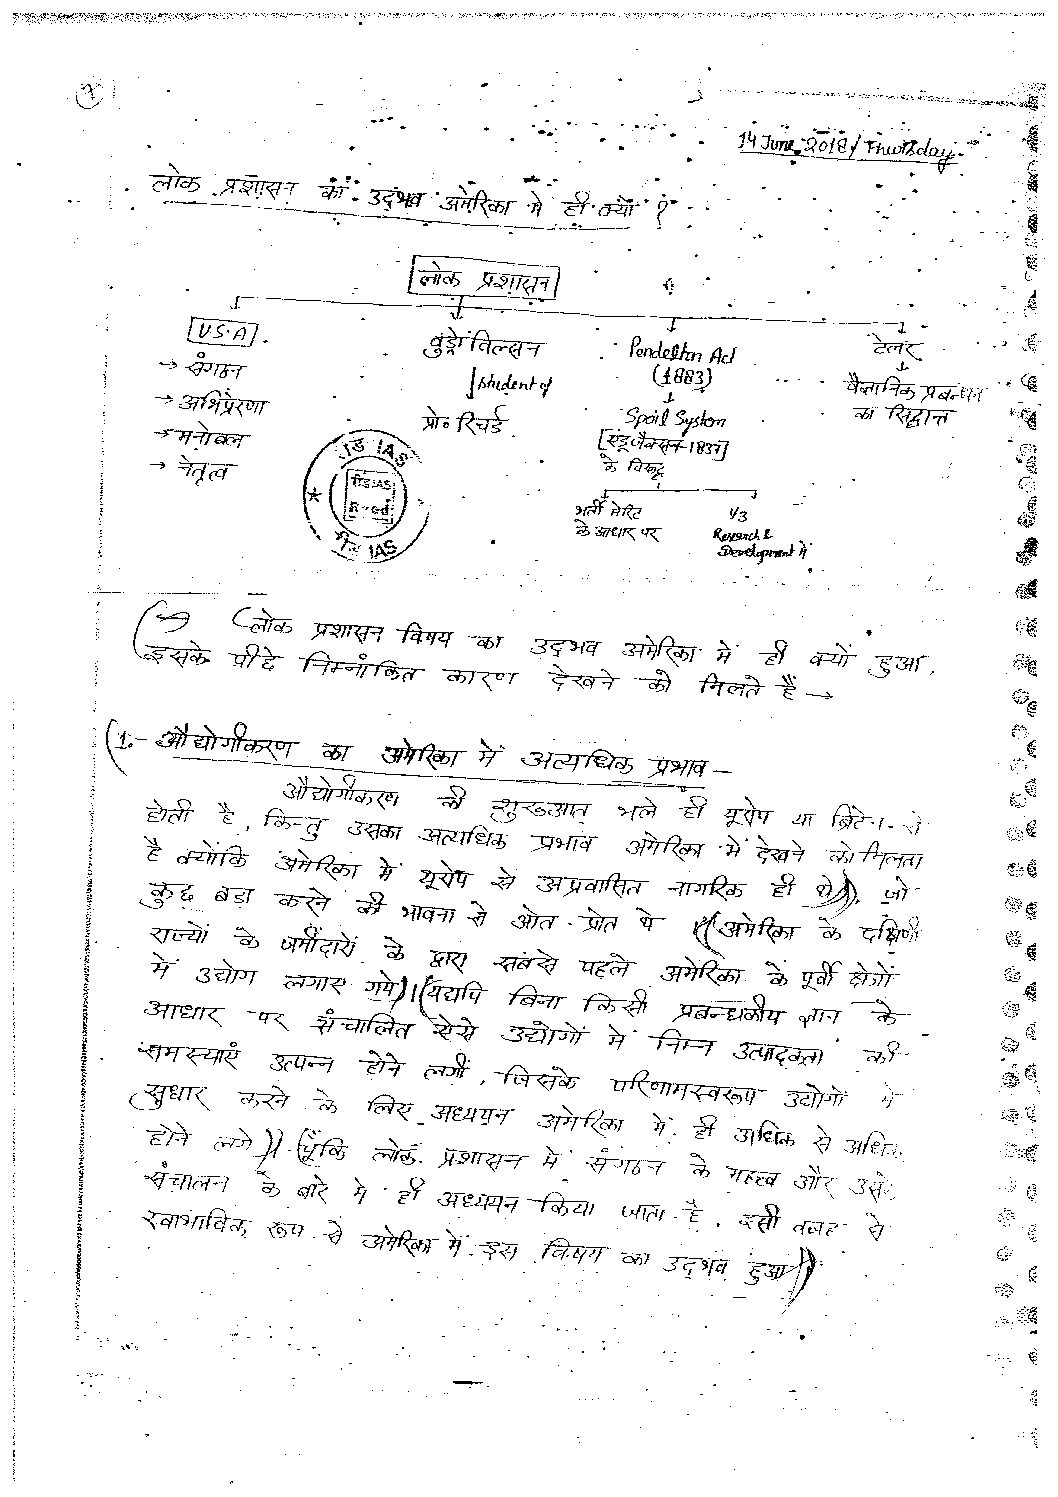 14 June 2018 / Thursday
लोक प्रशासन का उद्भव अमेरिका में ही क्यों ?
लोक प्रशासन
U.S.A.
→ संगठन
→ अभिप्रेरणा
→ मनोबल
→ नेतृत्व
वुड्रो विल्सन
↓ student of
प्रो॰ रिचर्ड
Pendelton Act
(1883)
Spoil System
[एंड्रू जैक्सन-1837]
के विरुद्ध
भर्ती मेरिट
के आधार पर
1/3
Research &
Development में
टेलर
वैज्ञानिक प्रबन्धन
का सिद्धान्त
IAS
IAS
लोक प्रशासन विषय का उद्भव अमेरिका में ही क्यों हुआ,
इसके पीछे निम्नांकित कारण देखने को मिलते हैं →
1.- औद्योगीकरण का अमेरिका में अत्यधिक प्रभाव -
औद्योगीकरण की शुरूआत भले ही यूरोप या ब्रिटेन से
होती है, किन्तु उसका अत्यधिक प्रभाव अमेरिका में देखने को मिलता
है क्योंकि अमेरिका में यूरोप से अप्रवासित नागरिक ही थे, जो
कुछ बड़ा करने की भावना से ओत-प्रोत थे (अमेरिका के दक्षिणी
राज्यों के जमींदारों के द्वारा सबसे पहले अमेरिका के पूर्वी क्षेत्रों
में उद्योग लगाए गये)।(यद्यपि बिना किसी प्रबन्धकीय ज्ञान के
आधार पर संचालित ऐसे उद्योगों में निम्न उत्पादकता की
समस्याएं उत्पन्न होने लगीं, जिसके परिणामस्वरूप उद्योगों में
सुधार करने के लिए अध्ययन अमेरिका में ही अधिक से अधिक
होने लगे)। (चूँकि लोक प्रशासन में संगठन के महत्व और उसके
संचालन के बारे में ही अध्ययन किया जाता है, इसी वजह से
स्वाभाविक रूप से अमेरिका में इस विषय का उद्भव हुआ)